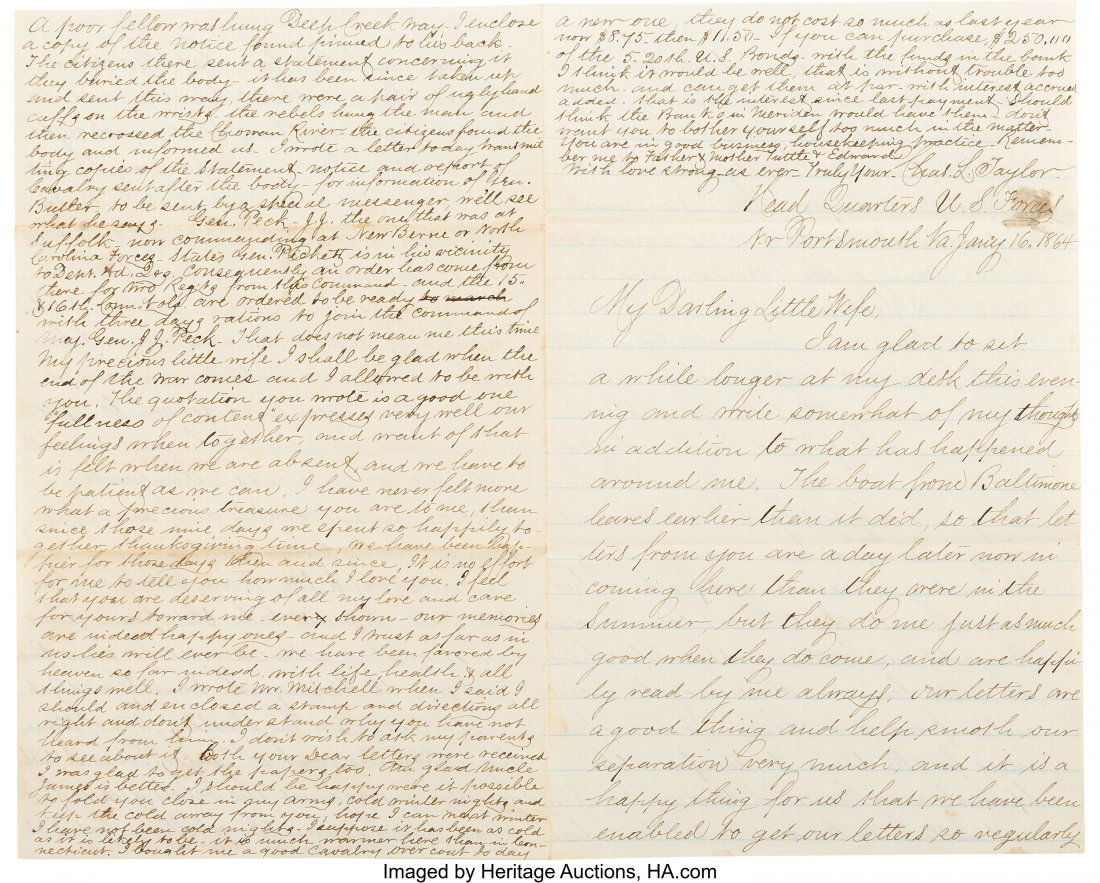 A poor fellow was hung Deep Creek way. I enclose
a copy of the notice found pinned to his back.
The citizens there sent a statement concerning it
they buried the body - it has been since taken up
and sent this way, there were a pair of ugly hand
cuffs on the wrists. the rebels hung the man and
then recrossed the Chowan River - the citizens found the
body and informed us. I wrote a letter to day transmit
ting copies of the Statement - notice and report of
Cavalry sent after the body - for information of Gen.
Butler - to be sent by a special messenger, we'll see
what he says. Gen. Peck - J.J. the one that was at
Suffolk now commanding at New Berne or North
Carolina Forces - States Gen. Pickett is in his vicinity
to Dept. Hd. Qrs. Consequently an order has come from
there for two Regts from this command - and the 15"
& 16th Conn. Vols are ordered to be ready to march
with three days rations to join the command of
Maj. Gen. J. J. Peck. That does not mean me this time
my precious little wife. I shall be glad when the
end of the war comes and I allowed to be with
you. The quotation you wrote is a good one
"fullness of content" expresses very well our
feelings when together, and want of that
is felt when we are absent, and we have to
be patient as we can. I have never felt more
what a precious treasure you are to me, than
since those nine days we spent so happily to
gether thanksgiving time, we have been hap-
pier for those days then and since, It is no effort
for me to tell you how much I love you. I feel
that you are deserving of all my love and care
for yours toward me - every shown - our memories
are indeed happy ones - and I trust as far as in
us lies will ever be - we have been favored by
heaven so far indeed. with life, health & all
things well. I wrote Mr. Mitchell when I said I
should and enclosed a stamp and directions all
right and dont understand why you have not
heard from him. I don't wish to ask my parents
to see about it. Both your dear letters were received
I was glad to get the papers too. Am glad Uncle
James is better. I should be happy were it possible
to fold you close in my arms, cold winter nights, and
keep the cold away from you, hope I can next winter
I have not been cold nights. I suppose it has been as cold
as it is likely to be - it is much warmer here than in Con-
necticut. I bought me a good Cavalry over coat to day
a new one, they do not cost so much as last year
now $8.75 then $11.50 - If you can purchase $250.00
of the 5-20th U.S. Bonds - with the funds in the bank
I think it would be well, that is without trouble too
much - and can get them at par - with interest accrued
added. that is the interest since last payment - Should
think the Bank in Meriden would have them - dont
want you to bother yourself too much in the matter -
You are in good business, housekeeping practice - Remem-
ber me to Father & Mother Tuttle & Edward
With love strong as ever - Truly Your - Chas. L. Taylor
Head Quarters U. S Forces
Nr Portsmouth Va Jany 16. 1864
My Darling Little Wife,
I am glad to sit
a while longer at my desk this even-
ing and write somewhat of my thoughts
in addition to what has happened
around me. The boat from Baltimore
leaves earlier than it did, so that let-
ters from you are a day later now in
coming here than they were in the
Summer, but they do me just as much
good when they do come, and are happi-
ly read by me always. our letters are
a good thing and help smoth our
separation very much, and it is a
happy thing for us that we have been
enabled to get our letters so regularly
Imaged by Heritage Auctions, HA.com